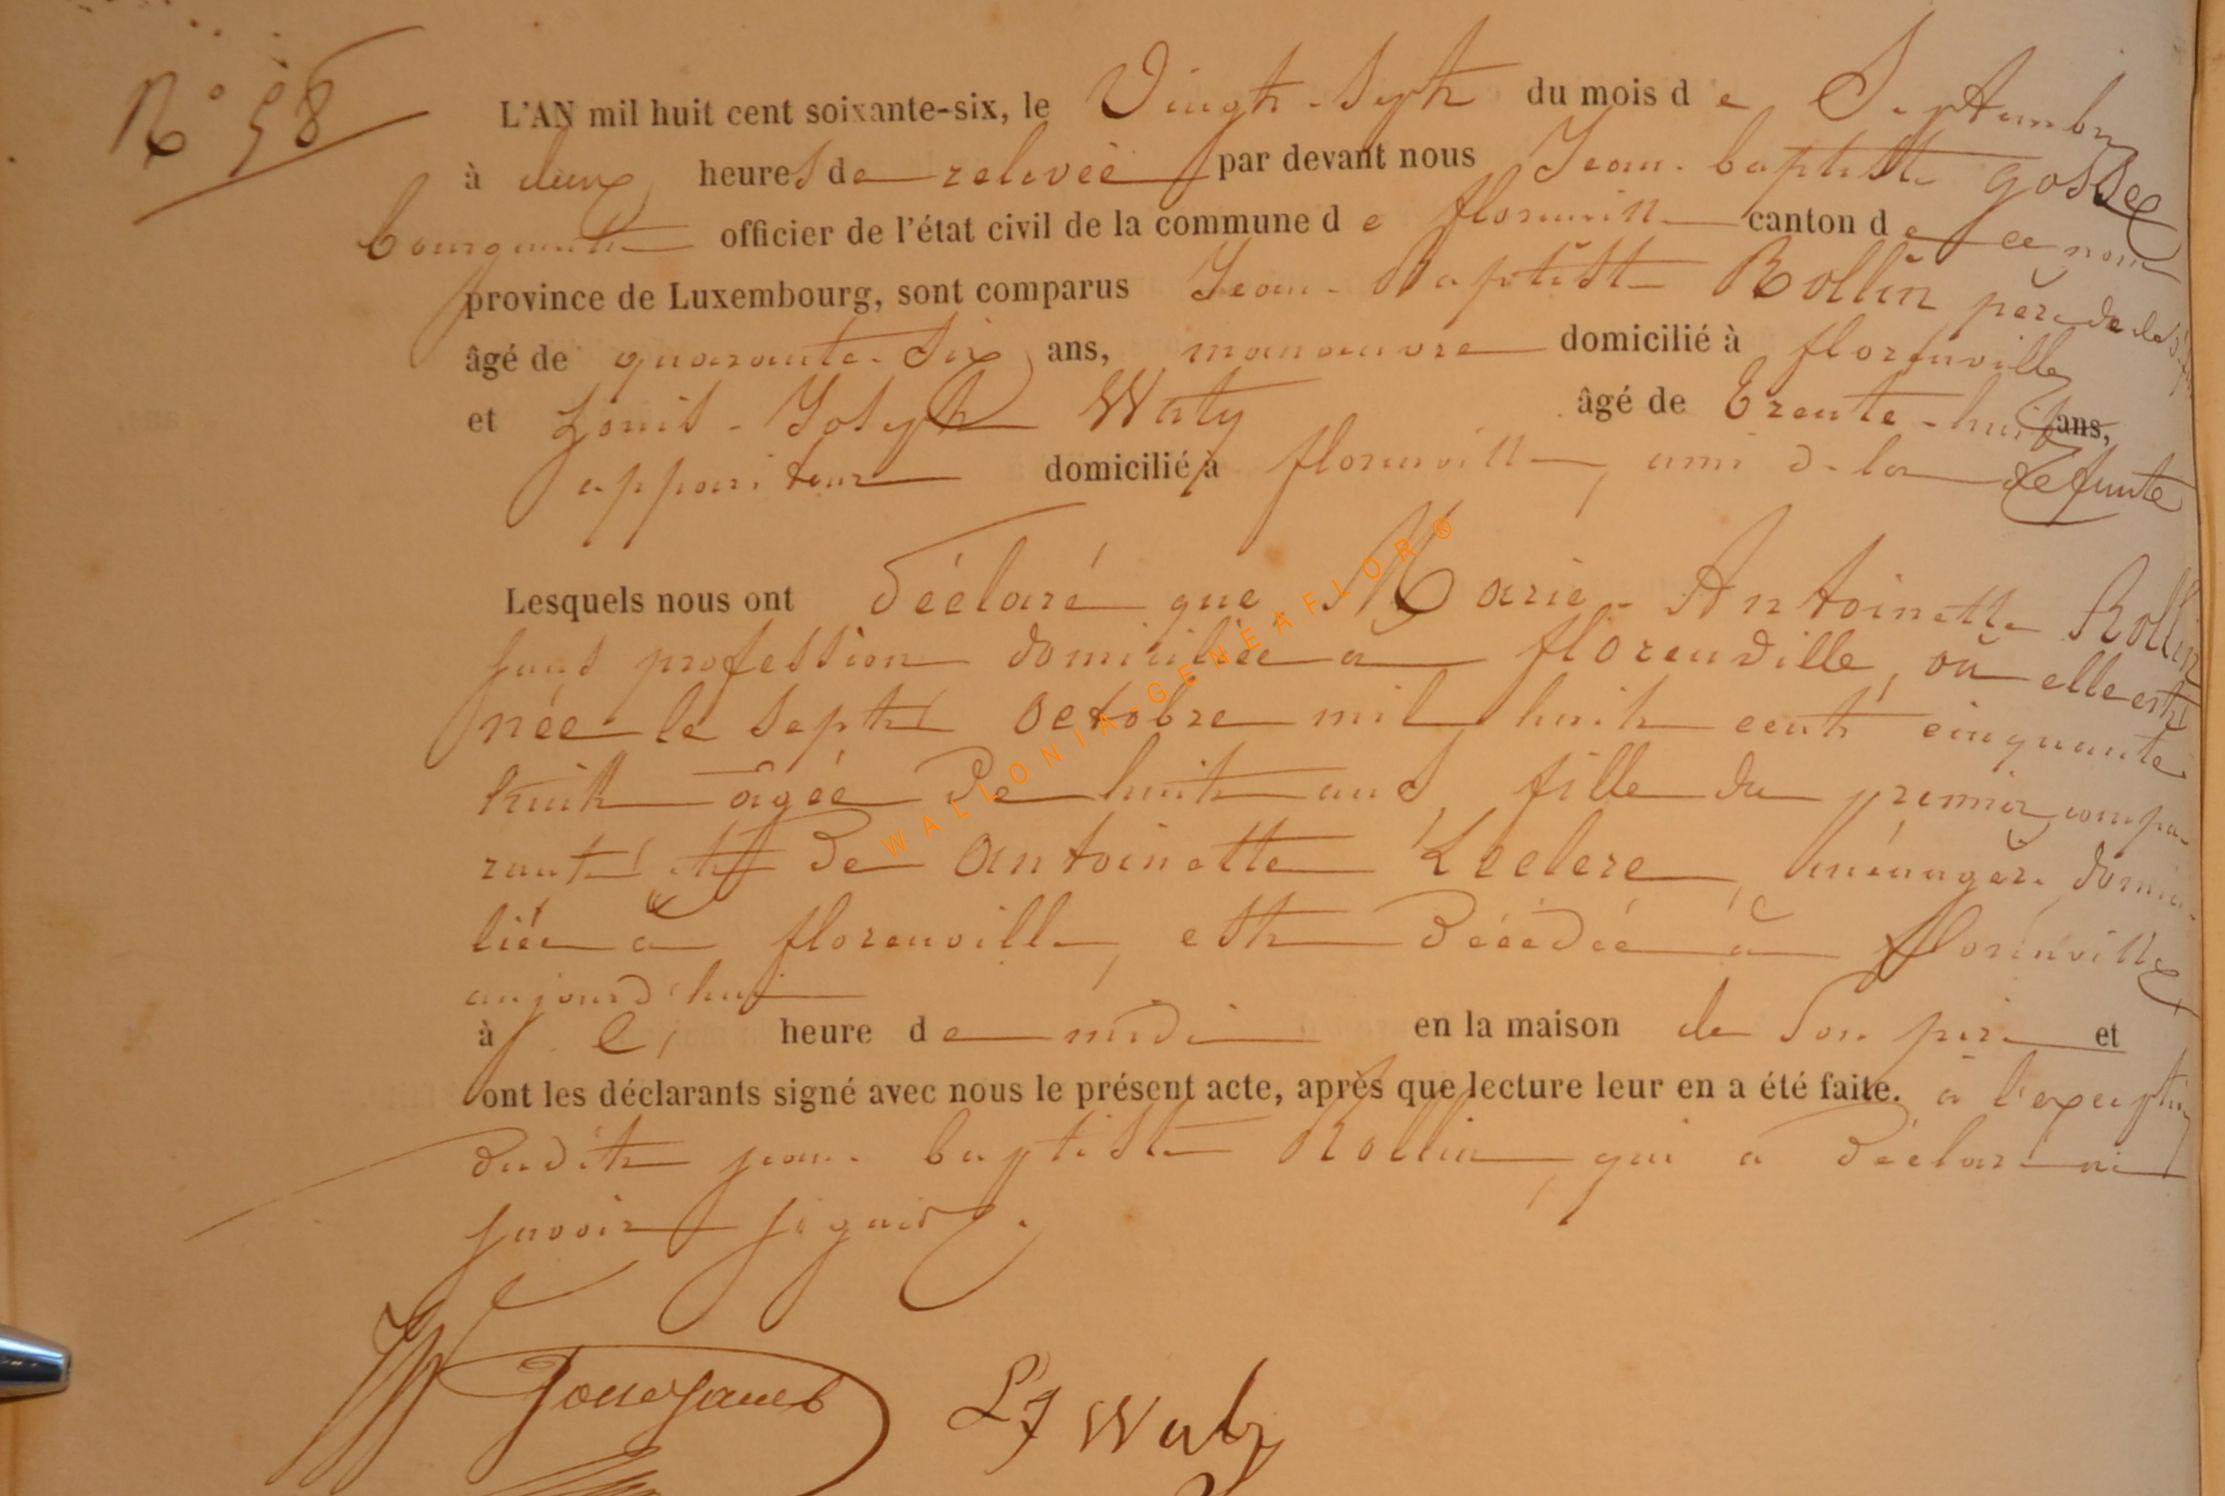 N° 58
L'AN mil huit cent soixante-six, le Vingt-Sept du mois de Septembre
à deux heures de relevée par devant nous Jean-baptiste gosse
bourgmestre officier de l'état civil de la commune de florenville canton de ce nom
province de Luxembourg, sont comparus Jean-Baptiste Rollin père de la
âgé de quarante-six ans, manoeuvre domicilié à florenville
et Louis-Joseph Waty âgé de trente-huit ans,
appariteur domicilié à florenville, ami de la défunte
Lesquels nous ont déclaré que Marie-Antoinette Rollin
sans profession domiciliée à florenville, où elle est
née le sept octobre mil huit cent cinquante
huit âgée de huit ans, fille du premier compa
rant et de Antoinette Leclere, ménagère domici
liée à florenville, est décédée à florenville
aujourd'hui
à heure de midi en la maison de son père et
ont les déclarants signé avec nous le présent acte, après que lecture leur en a été faite. à l'exception
dudit jean-baptiste Rollin, qui a déclaré ne
savoir signer.
LJ Waty
WALLONIA-GENEAFLOR®